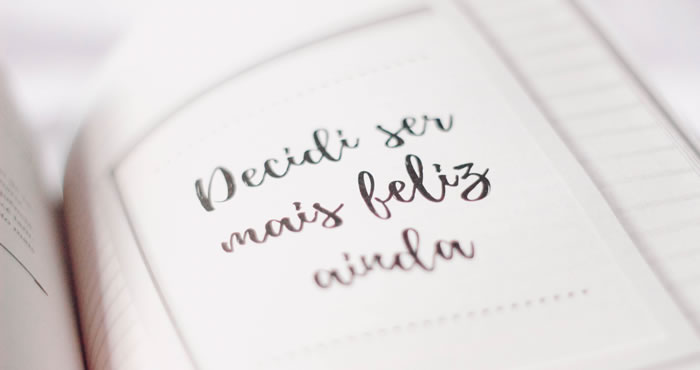 Decidi ser
mais feliz
ainda